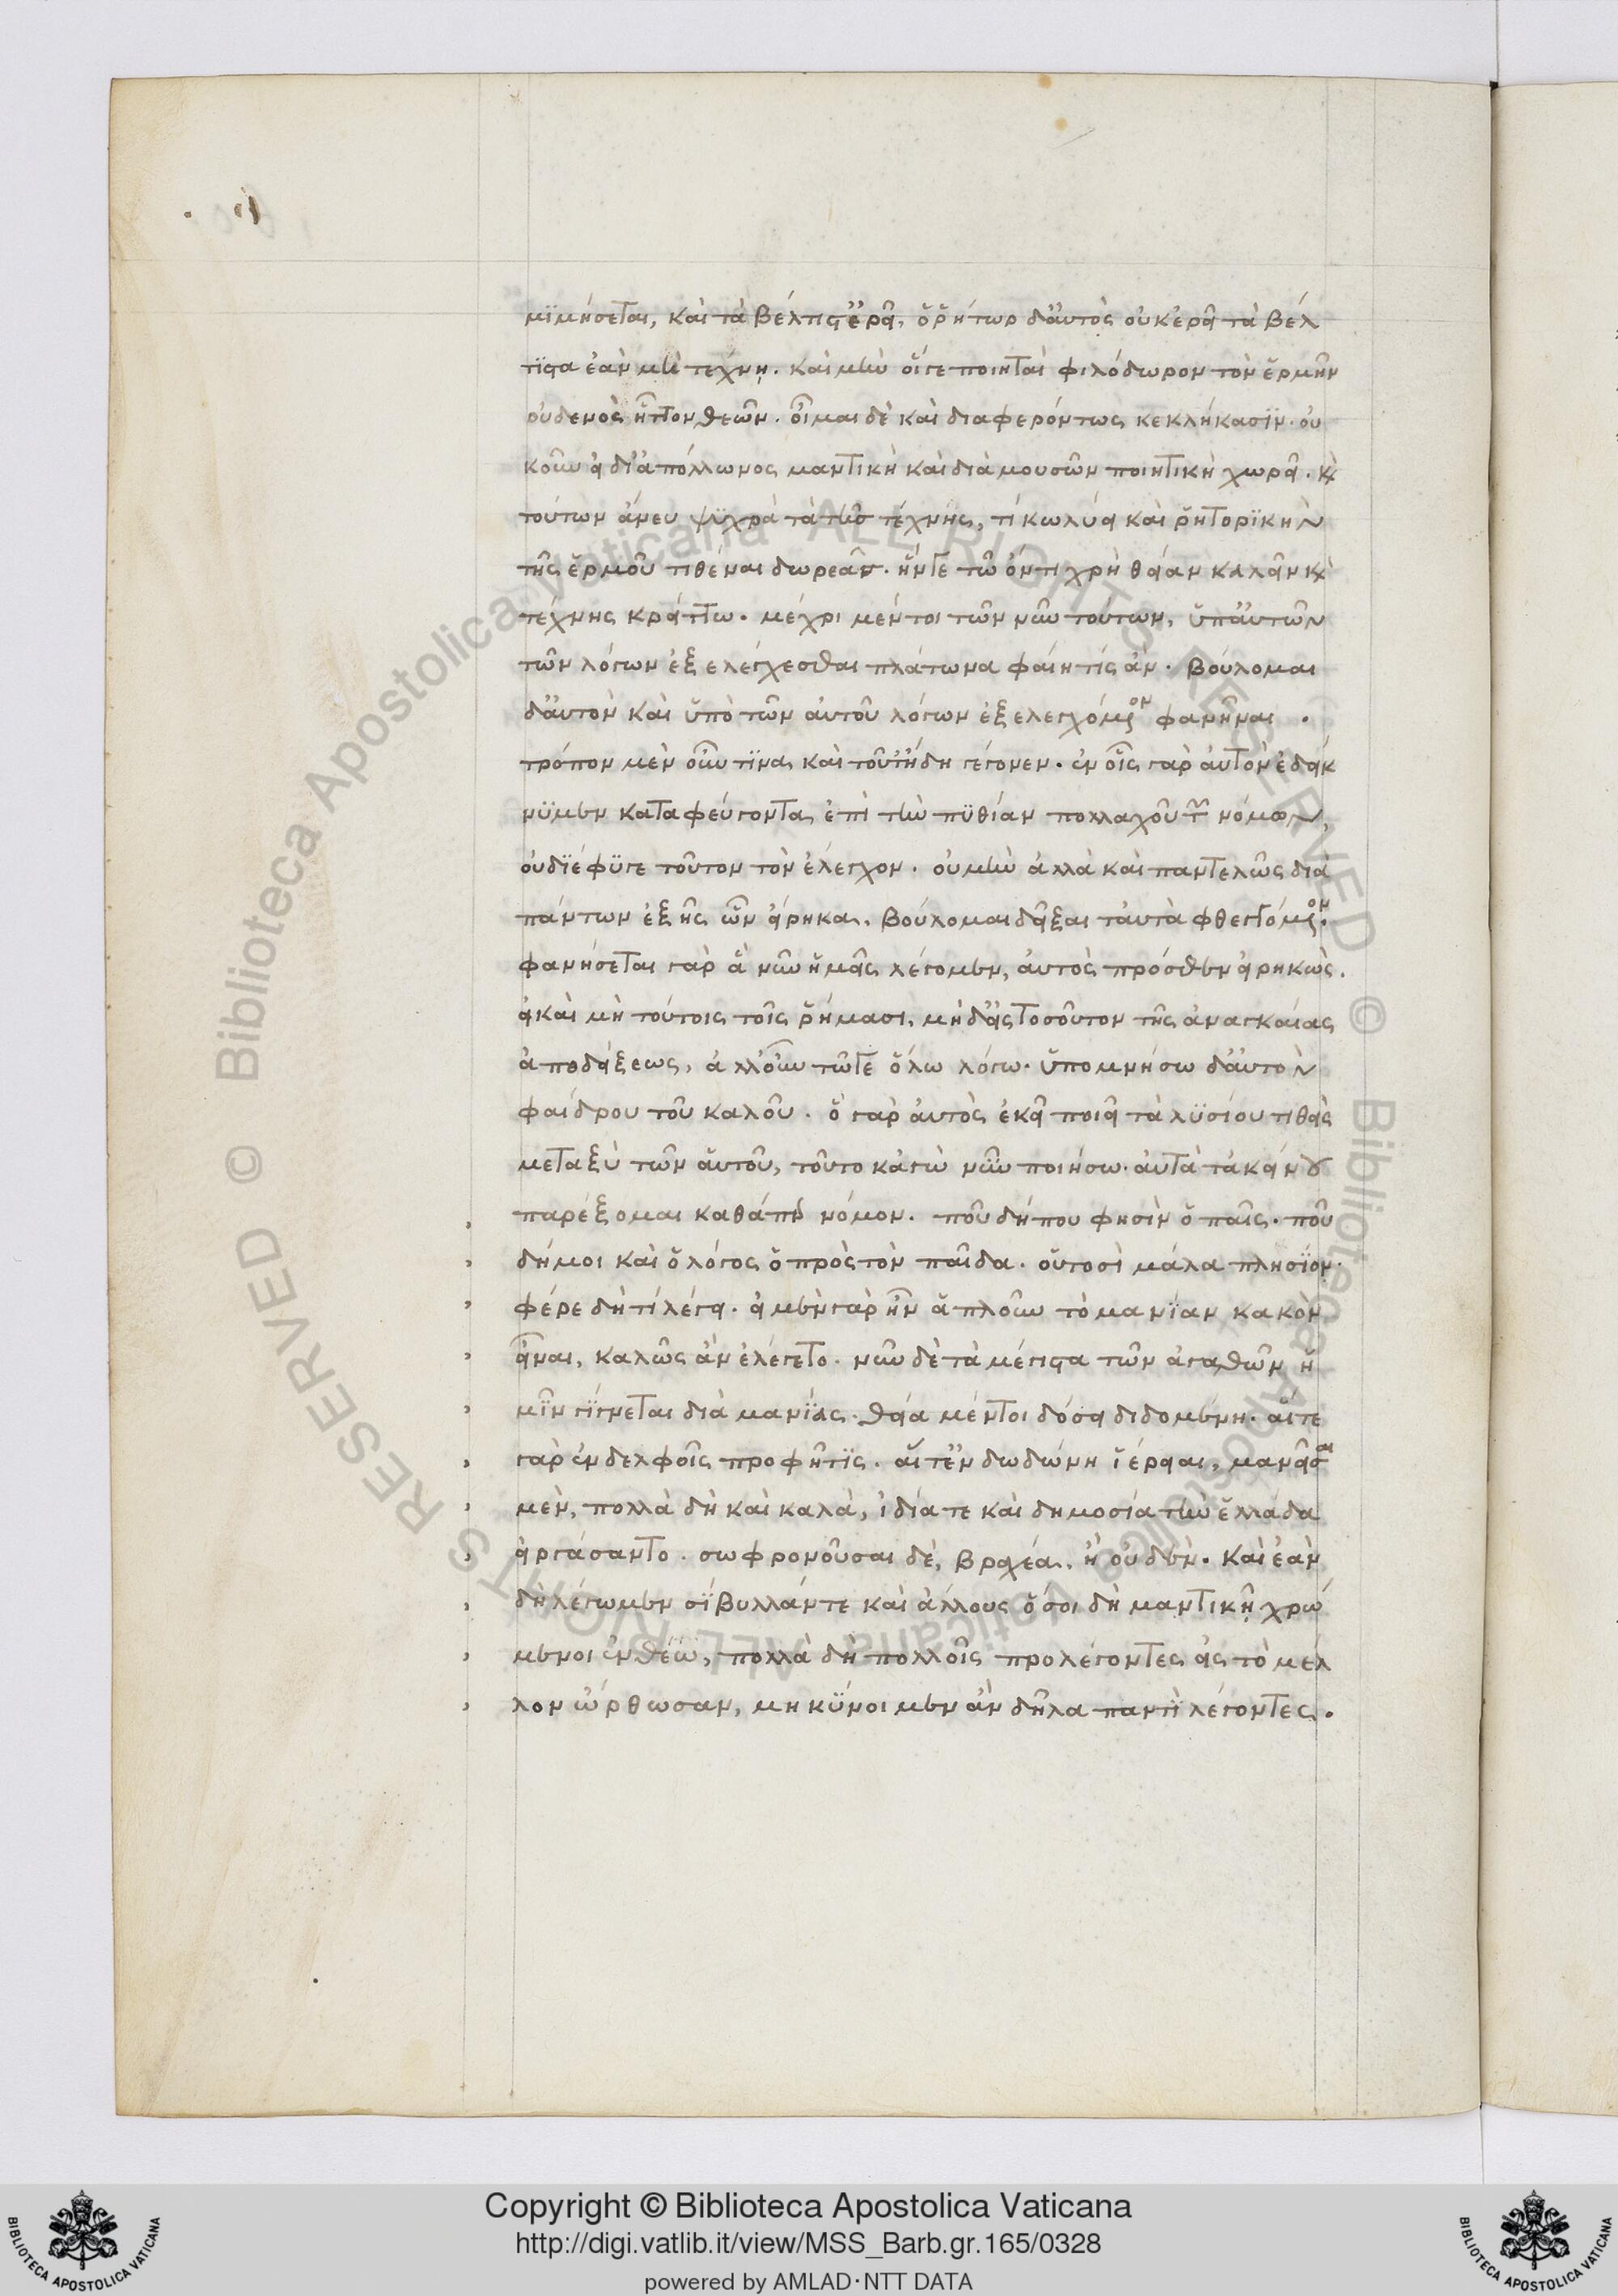 μϊμήσεται, καὶ τὰ βέλτιστ' ἐρεῖ. ὁ ῥήτωρ δ' αὐτὸς οὐκ ἐρεῖ τὰ βέλ
τϊστα ἐὰν μὴ τεχνη. καὶ μὴν οἵγε ποιηταὶ φιλόδωρον τὸν ἑρμῆν
οὐδενὸς ἧττον θεῶν. οἶμαι δὲ καὶ διαφερόντως κεκλήκασϊν. οὐ
κοῦν εἰ δι' ἀπόλλωνος μαντικὴ καὶ διὰ μουσῶν ποιητικὴ χωρεῖ. κ̀
τούτων ἄνευ ψϋχρὰ τὰ τῆσ τέχνης, τί κωλύει καὶ ῥητορϊκὴν
τῆς ἑρμοῦ τιθέναι δωρεᾶσ. ἥντε τῶ ὄντι χρὴ θείαν καλεῖν κ̀
τέχνης κρείττω. μέχρι μέντοι τῶν νῦν τούτων, ὑπ' αὐτῶν
τῶν λόγων ἐξελέγχεσθαι πλάτωνα φαίη τίς ἄν. βούλομαι
δ' αὐτὸν καὶ ὑπὸ τῶν αὐτοῦ λόγων ἐξελεγχόμενον φανῆναι .
τρόπον μὲν οὖν τϊνα καὶ τοῦτ' ἤδη γέγονεν. ἐν οἷς γὰρ αὐτὸν ἐδείκ
νϋμεν καταφεύγοντα ἐπὶ τὴν πϋθίαν πολλαχοῦ τῶν νόμων,
οὐ δϊέφϋγε τοῦτον τὸν ἔλεγχον. οὐ μὴν ἀλλὰ καὶ παντελῶς διὰ
πάντων ἑξῆς ὧν εἴρηκα. βούλομαι δεῖξαι ταὐτὰ φθεγγόμενον.
φανήσεται γὰρ ἃ νῦν ἡμᾶς λέγομεν, αὐτὸς πρόσθεν εἰρηκὼς.
εἰ καὶ μὴ τούτοις τοῖς ῥήμασι, μηδ' εἰς τοσοῦτον τῆς ἀναγκαίας
ἀποδείξεως, ἀλλ' οὖν τῶγε ὅλω λόγω. ὑπομνήσω δ' αὐτὸν
φαίδρου τοῦ καλοῦ. ὃ γὰρ αὐτὸς ἐκεῖ ποιεῖ τὰ λϋσίου τιθεὶς
μεταξὺ τῶν αὑτοῦ, τοῦτο κἀγὼ νῦν ποιήσω. αὐτὰ τἀκείνου
παρέξομαι καθάπερ νόμον. ποῦ δήπου φησὶν ὁ παῖς. ποῦ
δή μοι καὶ ὁ λόγος ὁ πρὸς τὸν παῖδα. οὑτοσὶ μάλα πλησϊόν.
φέρε δὴ τί λέγει. εἰ μὲν γὰρ ἦν ἁπλοῦν τὸ μανϊαν κακὸν
εἶναι, καλῶς ἂν ἐλέγετο. νῦν δὲ τὰ μέγιστα τῶν ἀγαθῶν ἡ
μῖν γίγνεται διὰ μανϊας. θεία μέντοι δόσει διδομένη. αἵτε
γὰρ ἐν δελφοῖς προφήτϊς. αἵ τ' ἐν δωδώνη ἱέρειαι, μανεῖσαι
μὲν, πολλὰ δὴ καὶ καλὰ, ἰδία τε καὶ δημοσία τὴν ἑλλάδα
εἰργάσαντο. σωφρονοῦσαι δὲ, βραχέα. ἢ οὐδὲν. καὶ ἐὰν
δὴ λέγωμεν σίβυλλάν τε καὶ ἄλλους ὅσοι δὴ μαντικῇ χρώ
μενοι ἐνθέω, πολλὰ δὴ πολλοῖς προλέγοντες εἰς τὸ μέλ
λον ὤρθωσαν, μηκύνοι μεν ἂν δῆλα παντὶ λέγοντες.
Copyright © Biblioteca Apostolica Vaticana
http://digi.vatlib.it/view/MSS_Barb.gr.165/0328
powered by AMLAD·NTT DATA